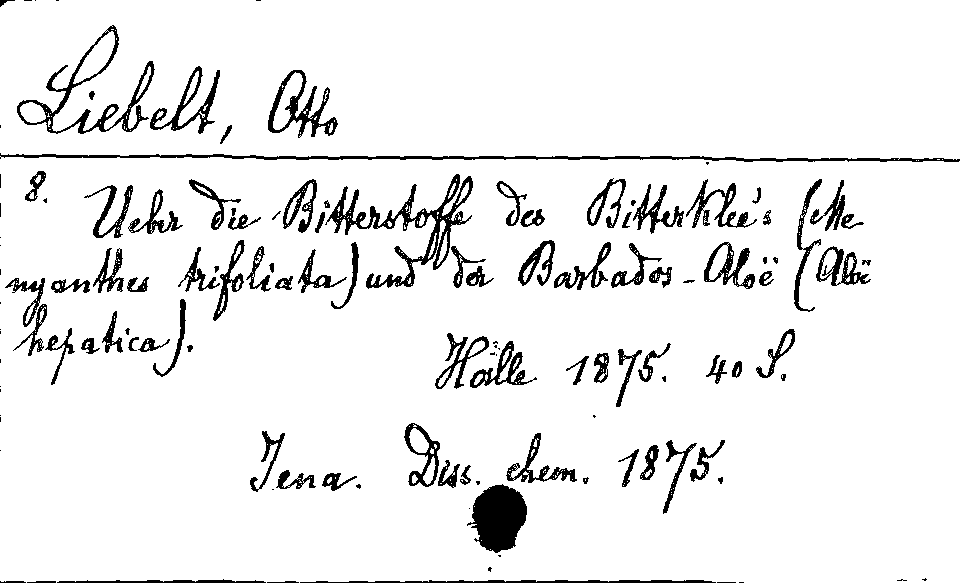 Liebelt, Otto
8. Ueber die Bitterstoffe des Bitterklee's (Me-
nyanthes trifoliata) und der Barbados-Aloë (Aloë
hepatica).
Halle 1875. 40 S.
Jena. Diss. chem. 1875.